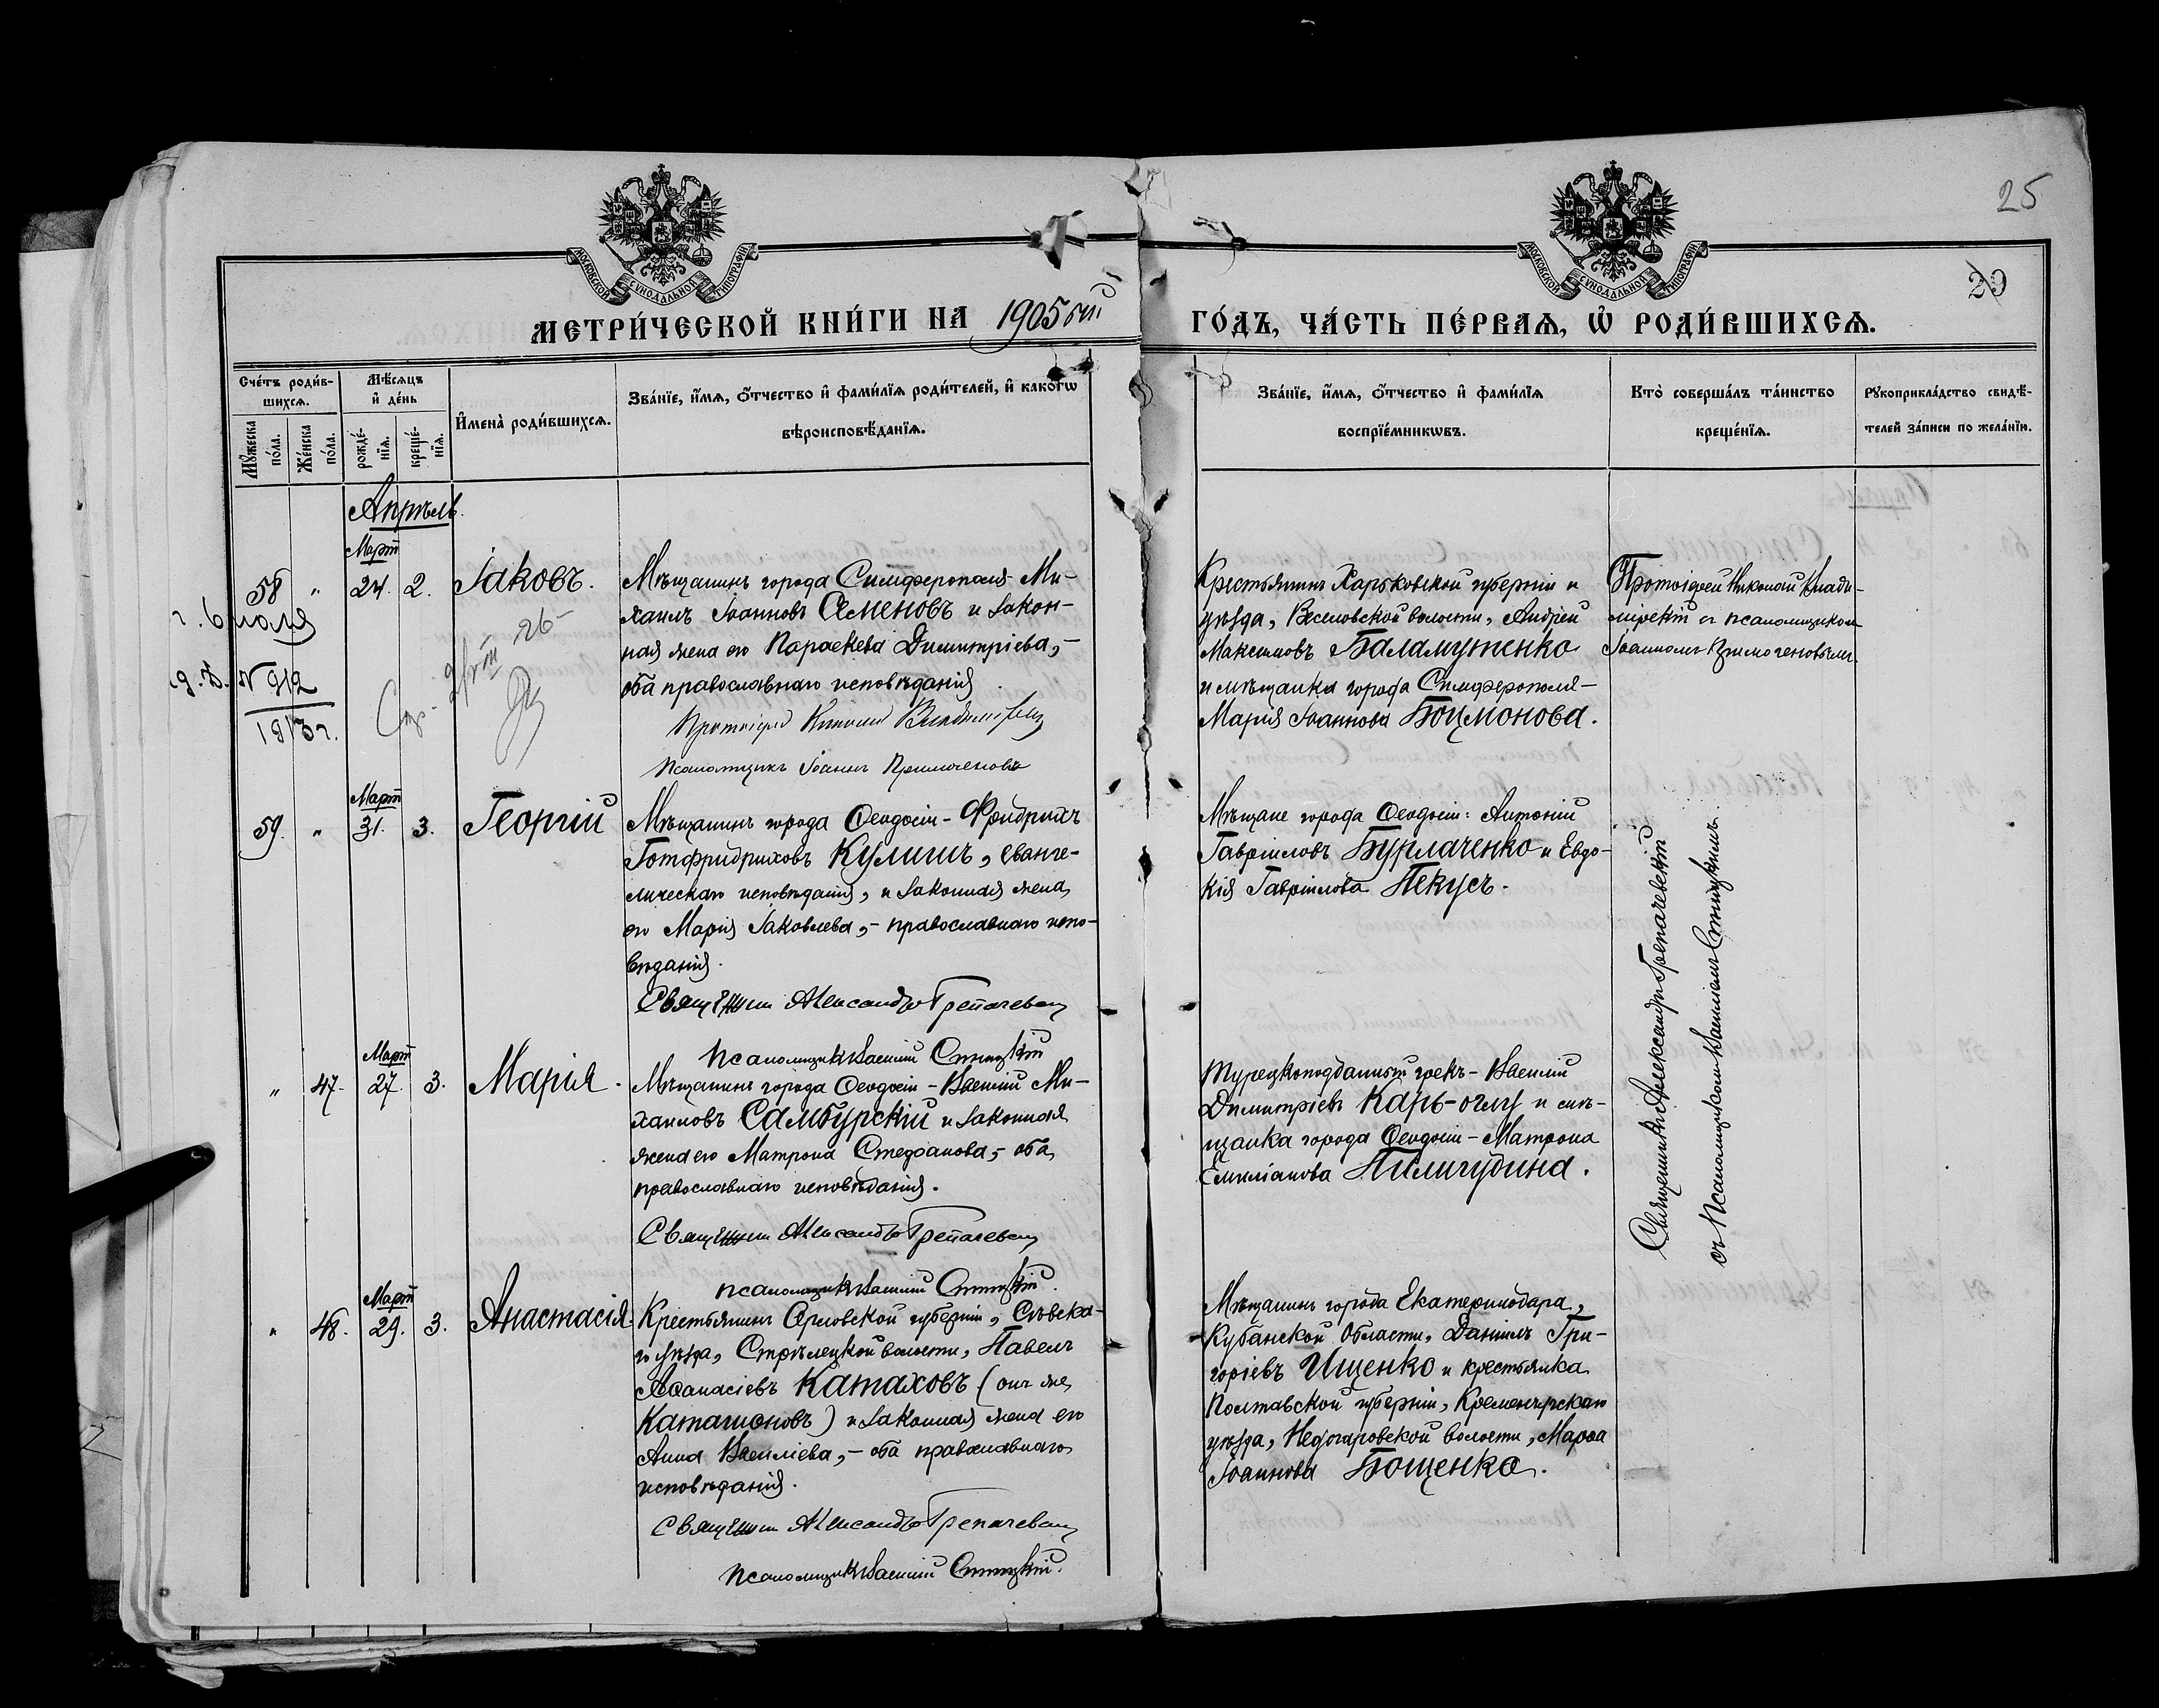 25
29
МОСКОВСКОЙ СѴНОДАЛЬНОЙ ТИПОГРАФІИ
МОСКОВСКОЙ СѴНОДАЛЬНОЙ ТИПОГРАФІИ
МЕТРИ́ЧЕСКОЙ КНИ́ГИ НА 1905 ый ГО́ДЪ, ЧА́СТЬ ПЕ́РВАѦ, Ѡ҆ РОДИ́ВШИХСѦ.
Сче́тъ роди́в-
шихсѧ.
Мꙋ́жеска
по́ла.
Же́нска
по́ла.
Мѣ́сѧцъ
и҆ де́нь
рожде́-
нїѧ.
креще́-
нїѧ.
И҆мена̀ роди́вшихсѧ.
Зва́нїе, и҆́мѧ, ѻ҆́тчество и҆ фами́лїѧ роди́телей, и҆ како́гѡ
вѣроисповѣ́данїѧ.
Зва́нїе, и҆́мѧ, ѻ҆́тчество и҆ фами́лїѧ
воспрїе́мникѡвъ.
Кто̀ соверша́лъ та́инство
креще́нїѧ.
Рꙋкоприкла́дство свидѣ́-
телей за́писи по жела́нїю.
Апрѣль.
Март
58 " 24. 2. Іаковъ.
Мѣщанинъ города Симферополя Ми-
хаилъ Іоанновъ Семеновъ и закон-
ная жена его Параскева Димитріева, –
оба православнаго исповѣданія
Протоіерей Николай Владимірскій
Псаломщикъ Іоаннъ
Крестьянинъ Харьковской губерніи и
уѣзда, Веселовской волости, Андрей
Максимовъ Баламутенко
и мѣщанка города Симферополя –
Марія Іоаннова Боцмонова.
Протоіерей Николай Влади-
мірскій съ псаломщикомъ
Іоанномъ
6 іюля
№ 912
1913 г.
Март
59. " 31. 3. Георгій
Мѣщанинъ города Ѳеодосіи – Фридрихъ
Готфридриховъ Кулишъ, еванге-
лическаго исповѣданія, и законная жена
его Марія Іаковлева, – православнаго испо-
вѣданія.
Священникъ Александръ
Псаломщикъ Василій
Мѣщане города Ѳеодосіи: Антоній
Гавріиловъ Бурлаченко и Евдо-
кія Гавріилова Пекусъ.
Священникъ Александръ
съ Псаломщикомъ Василіемъ
Март
" 47. 27. 3. Марія.
Мѣщанинъ города Ѳеодосіи – Василій Ми-
хаиловъ Самбурскій и законная
жена его Матрона Стефанова, – оба
православнаго исповѣданія.
Священникъ Александръ
Псаломщикъ Василій
Турецкоподданный грекъ – Василій
Димитріевъ Карь-оглу и мѣ-
щанка города Ѳеодосіи – Матрона
Емиліанова Пиличудина.
Март
" 48. 29. 3. Анастасія.
Крестьянинъ Орловской губерніи, Сѣвска-
го уѣзда, Стрѣлецкой волости, Павелъ
Аѳанасіевъ Катаховъ (онъ же
Каташоновъ) и законная жена его
Анна Василіева, – оба православнаго
исповѣданія.
Священникъ Александръ
Псаломщикъ Василій
Мѣщанинъ города Екатеринодара,
Кубанской Области, Даніилъ Гри-
горіевъ Ищенко и крестьянка
Полтавской губерніи, Кременчугскаго
уѣзда, Недогаровской волости, Марѳа
Іоаннова Бощенко.